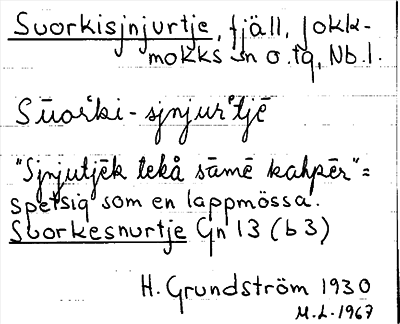 Suorkisjnjurtje, fjäll, Jokk-
mokks sn o. tg, Nb.l.
Sūorˈki-sjnjurˈtjē
"Sjnjutjēk tekå sāmē kahpēr" =
spetsig som en lappmössa.
Suorkesnurtje Gn 13 (b3)
H. Grundström 1930
M.L. 1967